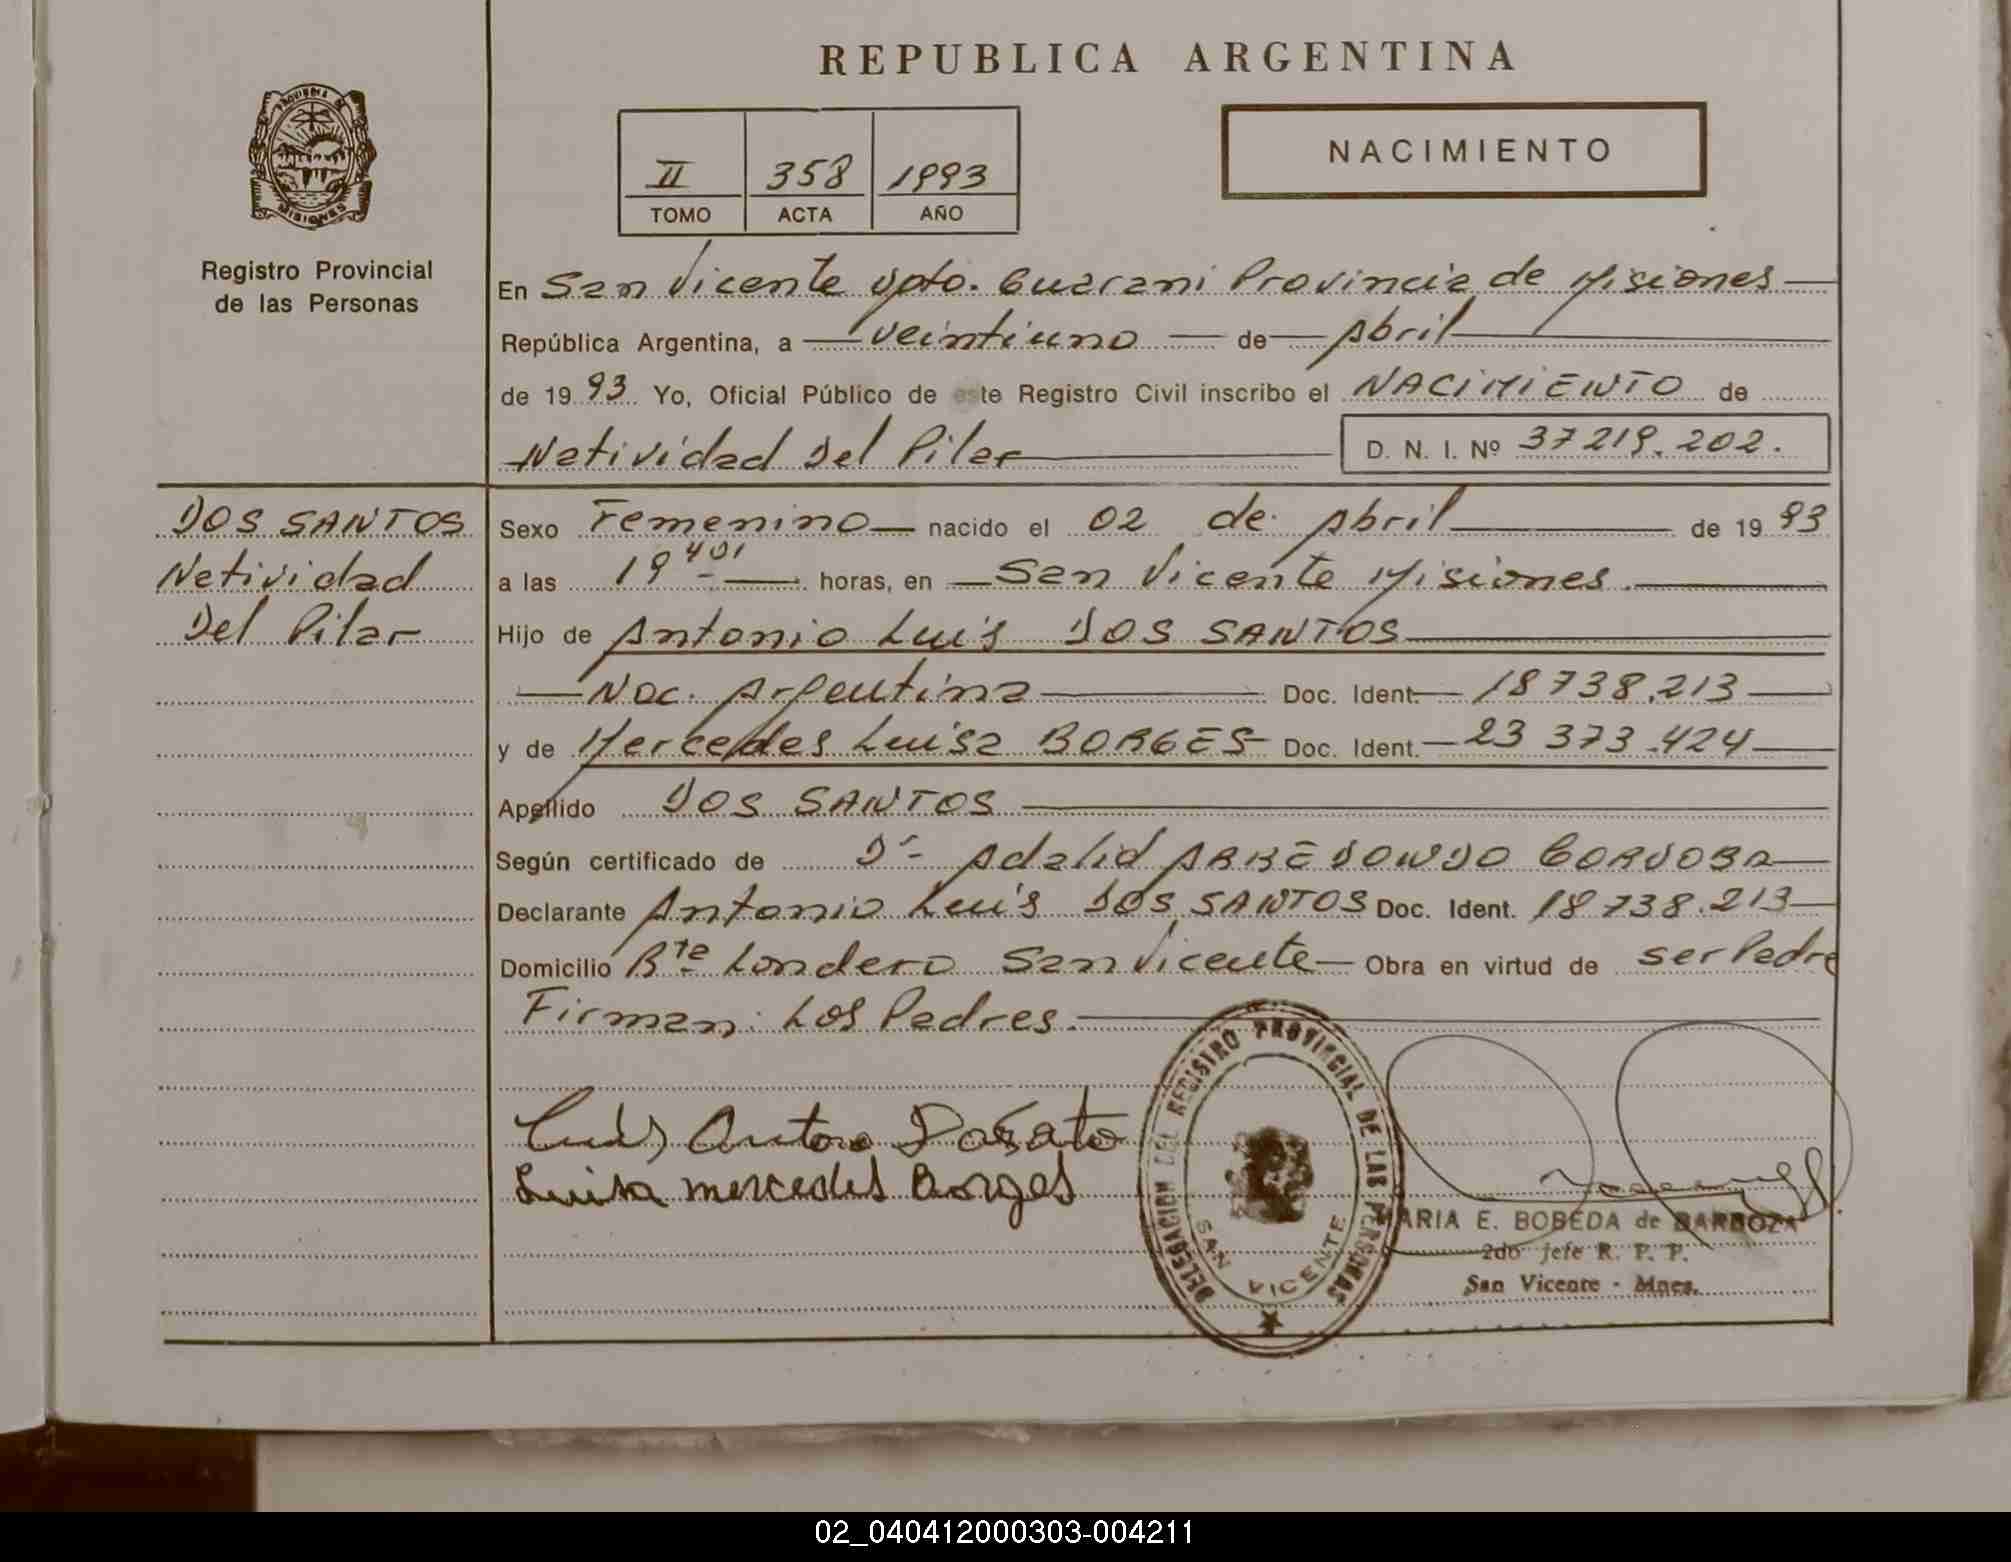 REPUBLICA ARGENTINA
PROVINCIA DE
MISIONES
Registro Provincial
de las Personas
II 358 1993
TOMO ACTA AÑO
NACIMIENTO
En San Vicente Dpto. Guarani Provincia de Misiones
República Argentina, a veintiuno de Abril
de 19 93 Yo, Oficial Público de este Registro Civil inscribo el NACIMIENTO de
Natividad Del Pilar
D. N. I. Nº 37219.202.
DOS SANTOS
Natividad
Del Pilar
Sexo Femenino nacido el 02 de Abril de 19 93
a las 19 40' horas, en San Vicente Misiones
Hijo de Antonio Luis DOS SANTOS
Nac. Argentina Doc. Ident. 18738.213
y de Mercedes Luisa BORGES Doc. Ident. 23 373.424
Apellido DOS SANTOS
Según certificado de Dr Adalid ARREDONDO CORDOBA
Declarante Antonio Luis DOS SANTOS Doc. Ident. 18738.213
Domicilio Bte Londero San Vicente Obra en virtud de ser Padre
Firman: Los Padres.
Luisa mercedes Borges
DELEGACION DEL REGISTRO PROVINCIAL DE LAS PERSONAS
SAN VICENTE
MARIA E. BOBEDA de BARBOZA
2do jefe R. P. P.
San Vicente - Mnes.
02_040412000303-004211